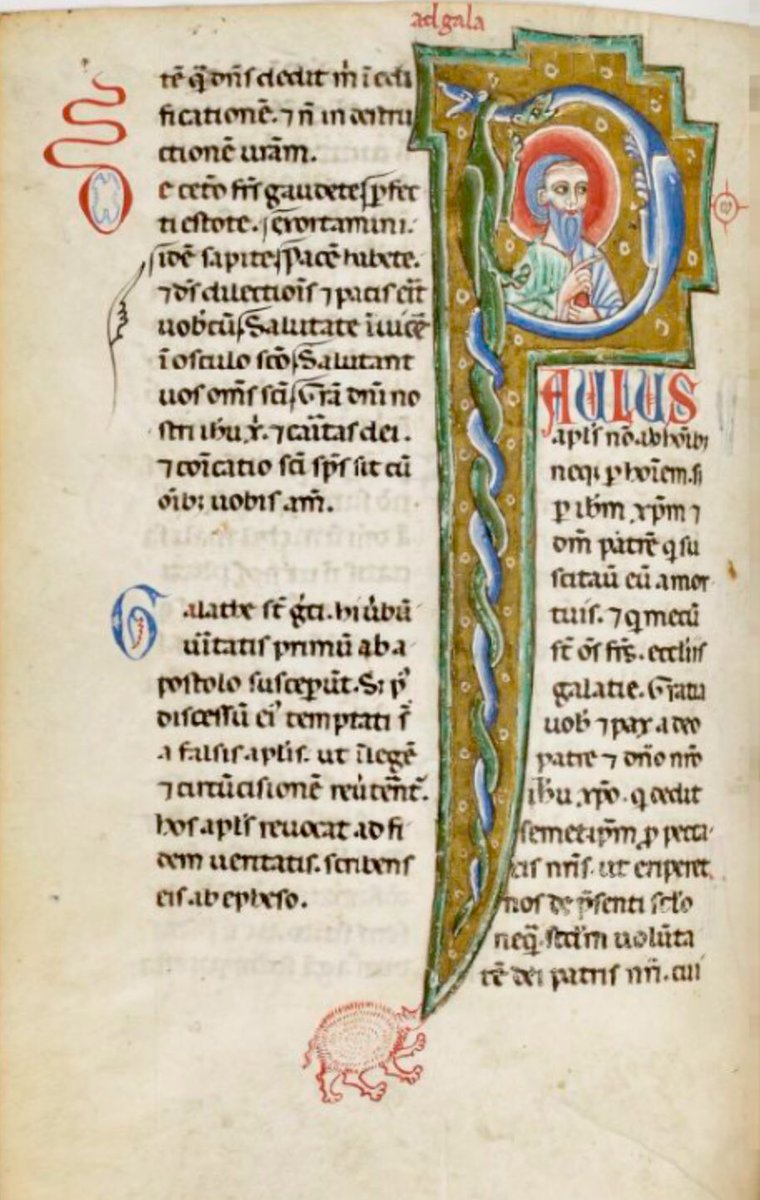 ad gala
tē q̄ dn̄s dedit m̄ i edi
ficationē. ⁊ n̄ in destru
ctionē uram̄.
De ceto fr̄s gaudete ꝑfec
ti estote. exortamini.
idē sapite pacē habete.
⁊ ds̄ dilectiois̄ ⁊ pacis erit̄
uobcū Salutate īuicē
ī osculo scō Salutant
uos oms̄ sci Gr̄a dni no
stri ihu x̄. ⁊ caītas dei.
⁊ coīcatio sci sp̄s sit cū
oīb; uobis. am̄.
Galathe st̄ gc̄i. hi ūbū
ūitatis primū ab a
postolo susceꝑūt. Sꝫ p'
discessū ei' temptati s̄
a falsis aplis. ut ī legē
⁊ circūcisionē
hos apls̄ reuocat ad fi
dem ueritatis. scribens
eis. ab epheso.
PAULUS
apls̄ nō. ab hoīb;
neq; ꝑ hoīem. s;
ꝑ ihm̄ xp̄m ⁊
dm̄ patrē q su
scitaū eū a mor
tuis. ⁊ q mecū
st̄ os̄ fr̄s. ecclīis
galatie. Gratia
uob̄ ⁊ pax a deo
patre ⁊ dn̄o nr̄o
ihu xp̄o. q dedit
semetip̄m ꝓ pecca
cis nr̄is. ut eriperet
nos de p̄senti sclo
neq̄. scdm̄ uolūta
tē dei patris nr̄i. cui